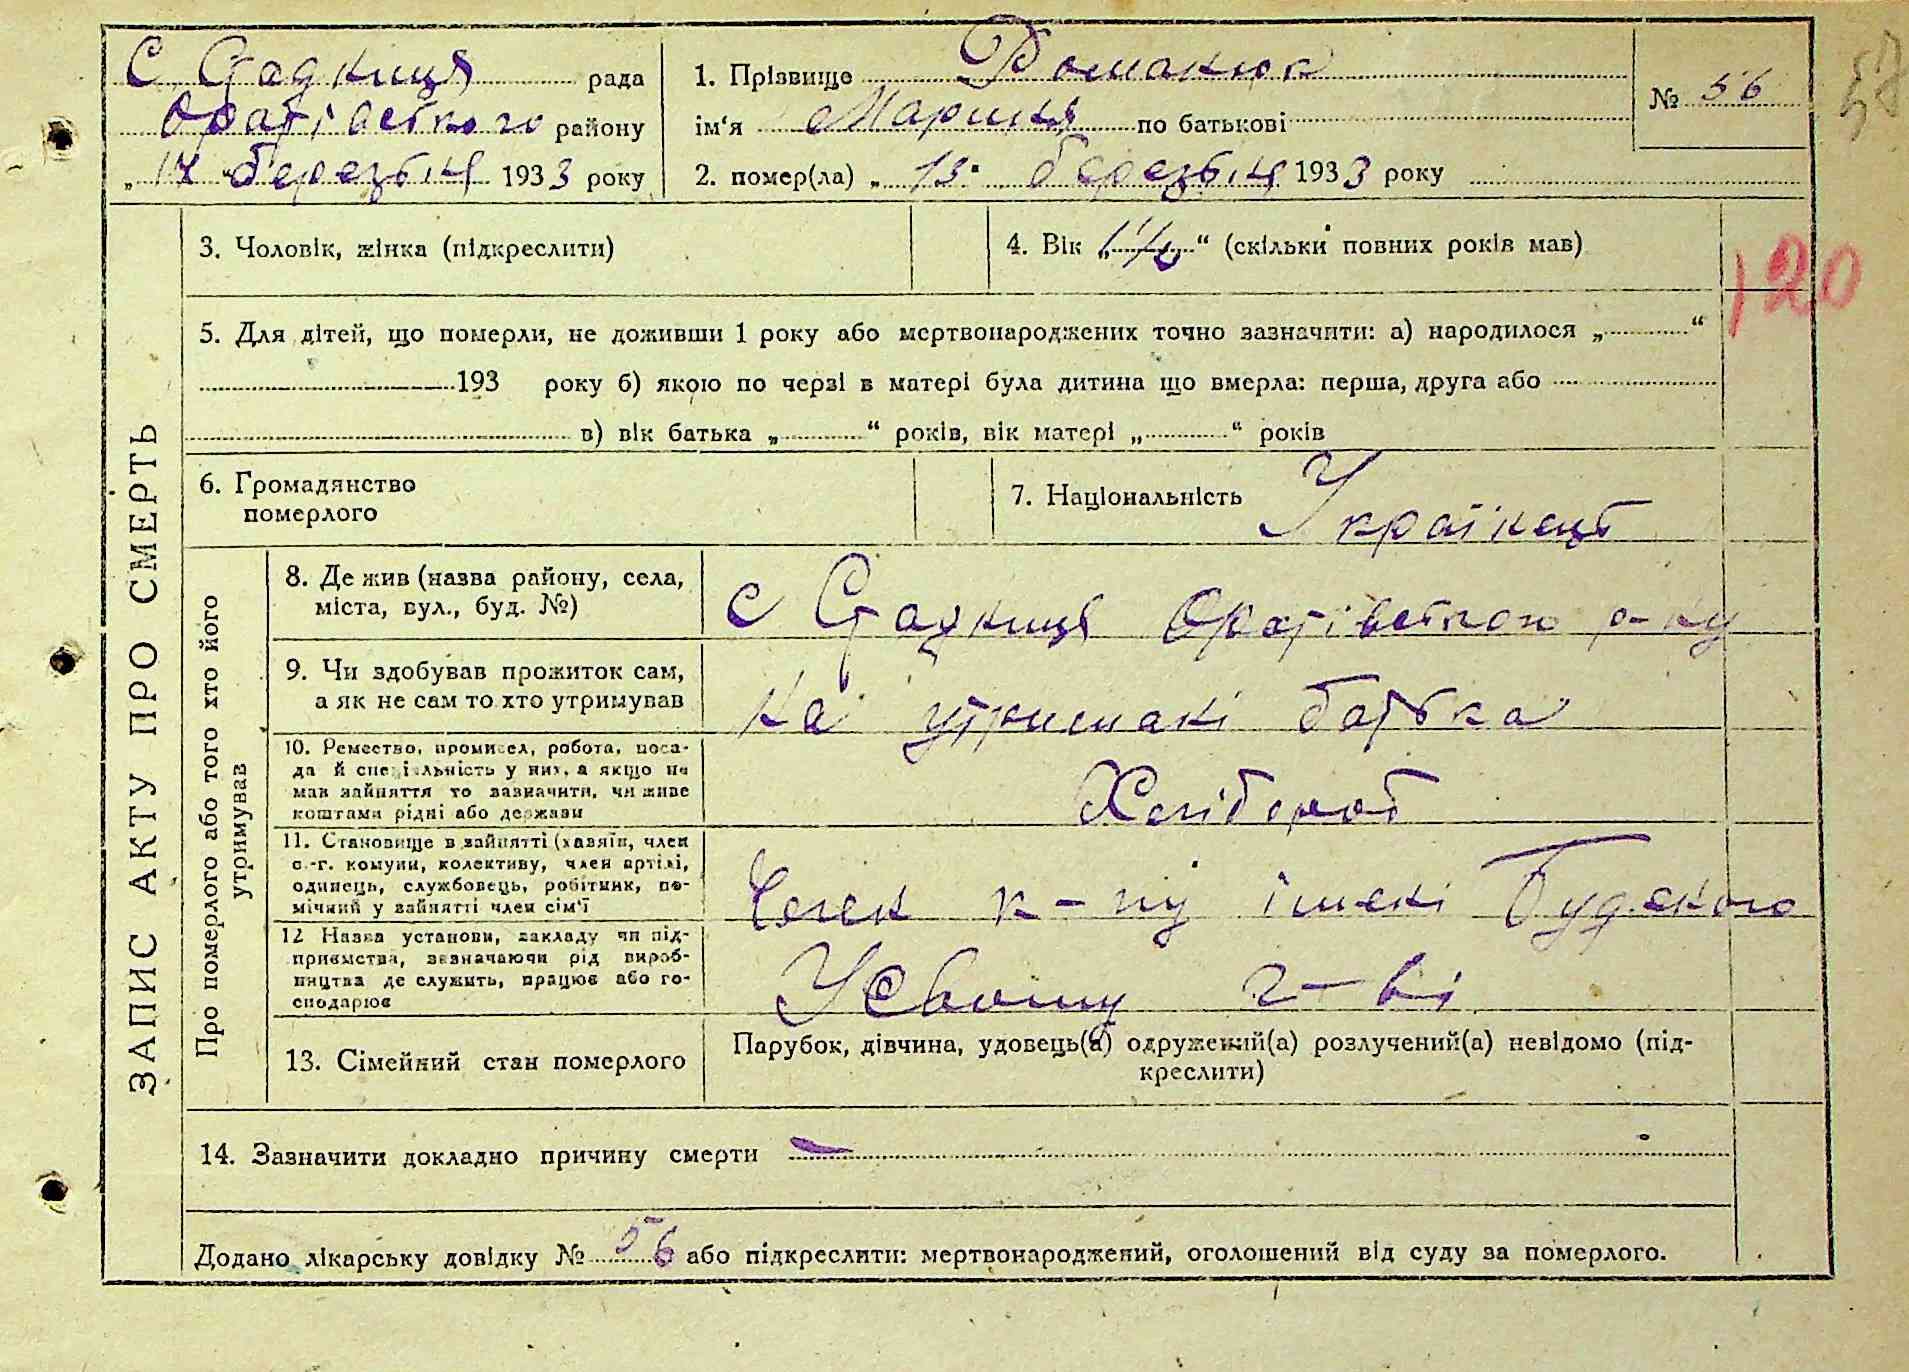 С Стадниця рада
Оратівского району
„ 17 " березьня 1933 року
1. Прізвище Романюк
ім'я Марина по батькові
2. помер(ла) „ 13 " березьня 1933 року
№ 56
57
3. Чоловік, жінка (підкреслити)
4. Вік „ " (скільки повних років мав)
120
5. Для дітей, що померли, не доживши 1 року або мертвонароджених точно зазначити: а) народилося „ "
193 року б) якою по черзі в матері була дитина що вмерла: перша, друга або
в) вік батька „ " років, вік матері „ " років
6. Громадянство
померлого
7. Національність Українець
ЗАПИС АКТУ ПРО СМЕРТЬ
Про померлого або того хто його
утримував
8. Де жив (назва району, села,
міста, вул., буд. №)
с Стадниця Оратівского р-ну
9. Чи здобував прожиток сам,
а як не сам то хто утримував
на утримані батька
10. Ремество, промисел, робота, поса-
да й спеціальність у них, а якщо не
мав зайняття то зазначити, чи живе
коштами рідні або держави
Хлібороб
11. Становище в зайнятті (хазяїн, член
с.-г. комуни, колективу, член артілі,
одинець, службовець, робітник, по-
мічний у зайнятті член сім'ї
Член к-пу імені Будьоного
12 Назва установи, закладу чи під-
приємства, зазначаючи рід вироб-
ництва де служить, працює або го-
сподарює
У свому г-ві
13. Сімейний стан померлого
Парубок, дівчина, удовець(а) одружений(а) розлучений(а) невідомо (під-
креслити)
14. Зазначити докладно причину смерти —
Додано лікарську довідку № 56 або підкреслити: мертвонароджений, оголошений від суду за померлого.